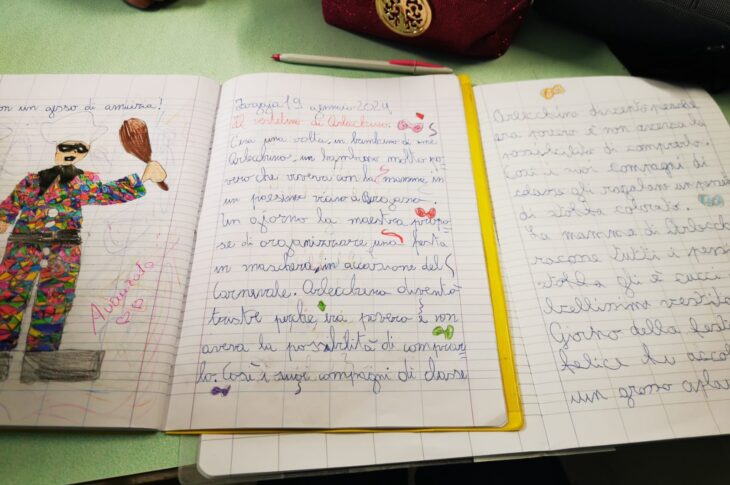 on un gesto di amicizia!
Avanzato
19 gennaio 2024
Il vestitino di Arlecchino.
C'era una volta, un bambino di nome
Arlecchino, un bambino molto po
vero che viveva con la mamma in
un paesino vicino a Bergamo.
Un giorno la maestra propo
se di organizzare una festa
in maschera, in occasione del
Carnevale. Arlecchino diventò
triste perché era povero e non
aveva la possibilità di comprar
lo. Così i suoi compagni di classe
Arlecchino diventò perché
era povero e non aveva la
possibilità di comprarlo.
Così i suoi compagni di
classe gli regalano un
di stoffa colorato.
La mamma di Arlecc
tutti i
stoffa gli e cucì
bellissimo vestito
Giorno della fest
felice
un grosso apla